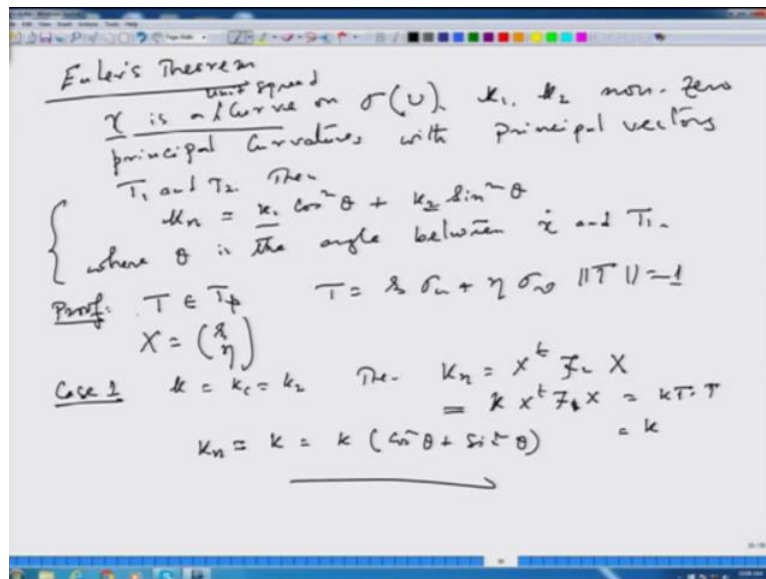 Euler's Theorem
unit speed
γ is a curve on σ(U). κ₁, κ₂ non-zero
principal curvatures with principal vectors
T₁ and T₂. Then
κₙ = κ₁ cos²θ + κ₂ sin²θ
where θ is the angle between γ̇ and T₁.
Proof: T ∈ Tₚ T = ξ σᵤ + η σᵥ ||T|| = 1
X = (ξ η)
Case 1 κ = κ₁ = κ₂ The. κₙ = Xᵗ F₂ X
= κ Xᵗ F₁ X = κ T·T
κₙ = κ = κ (cos²θ + sin²θ) = κ